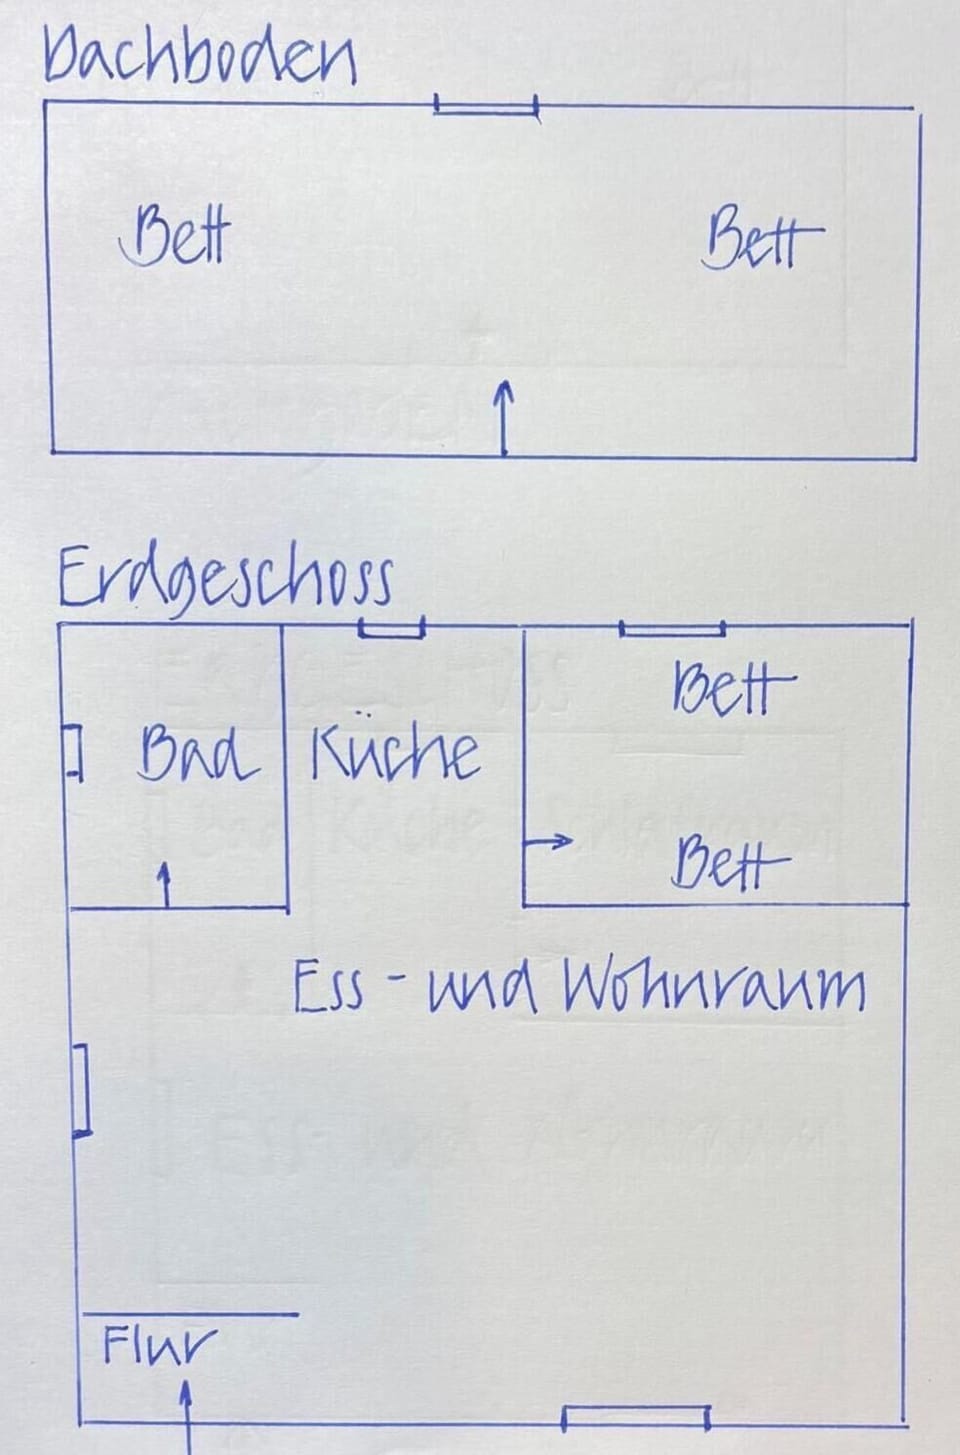 Dachboden
Bett Bett
Erdgeschoss
Bett
Bad Küche
Bett
Ess - und Wohnraum
Flur